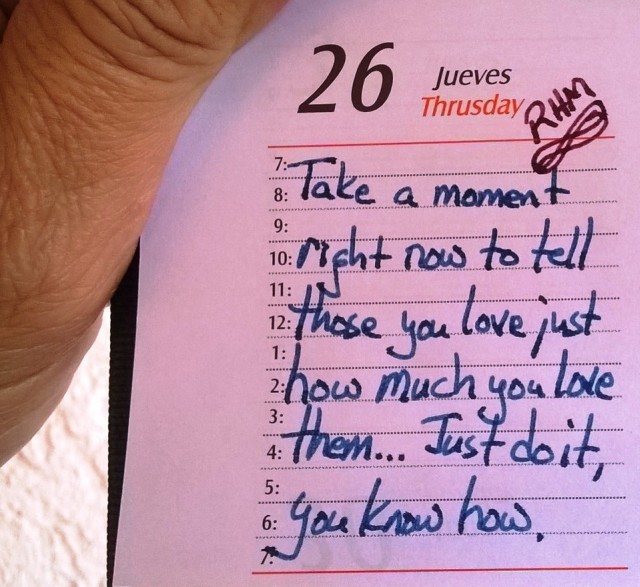 26
Jueves
Thrusday
RHM
7:
8: Take a moment
9:
10: right now to tell
11:
12: those you love just
1:
2: how much you love
3:
4: them... Just do it,
5:
6: you know how.
7: